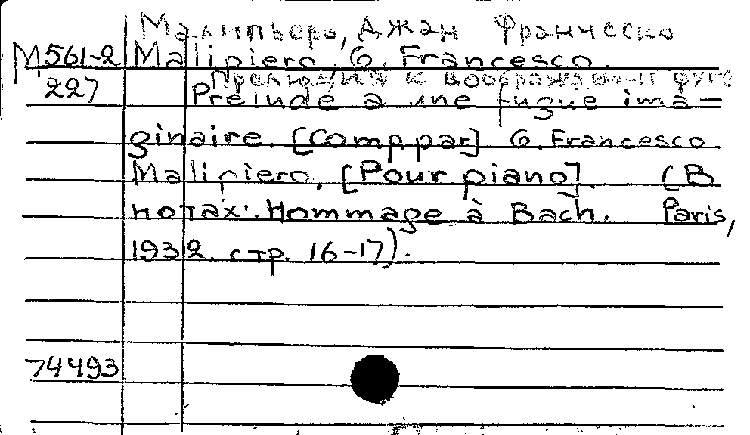 Малипьеро, Джан Франческо
М561-2 Malipiero, G. Francesco.
Прелюдия к воображаемой фуге
227 Prélude à une fugue ima-
ginaire. [Comp. par] G. Francesco
Malipiero, [Pour piano]. (В
нотах: Hommage à Bach. Paris,
1932. стр. 16-17).
74493